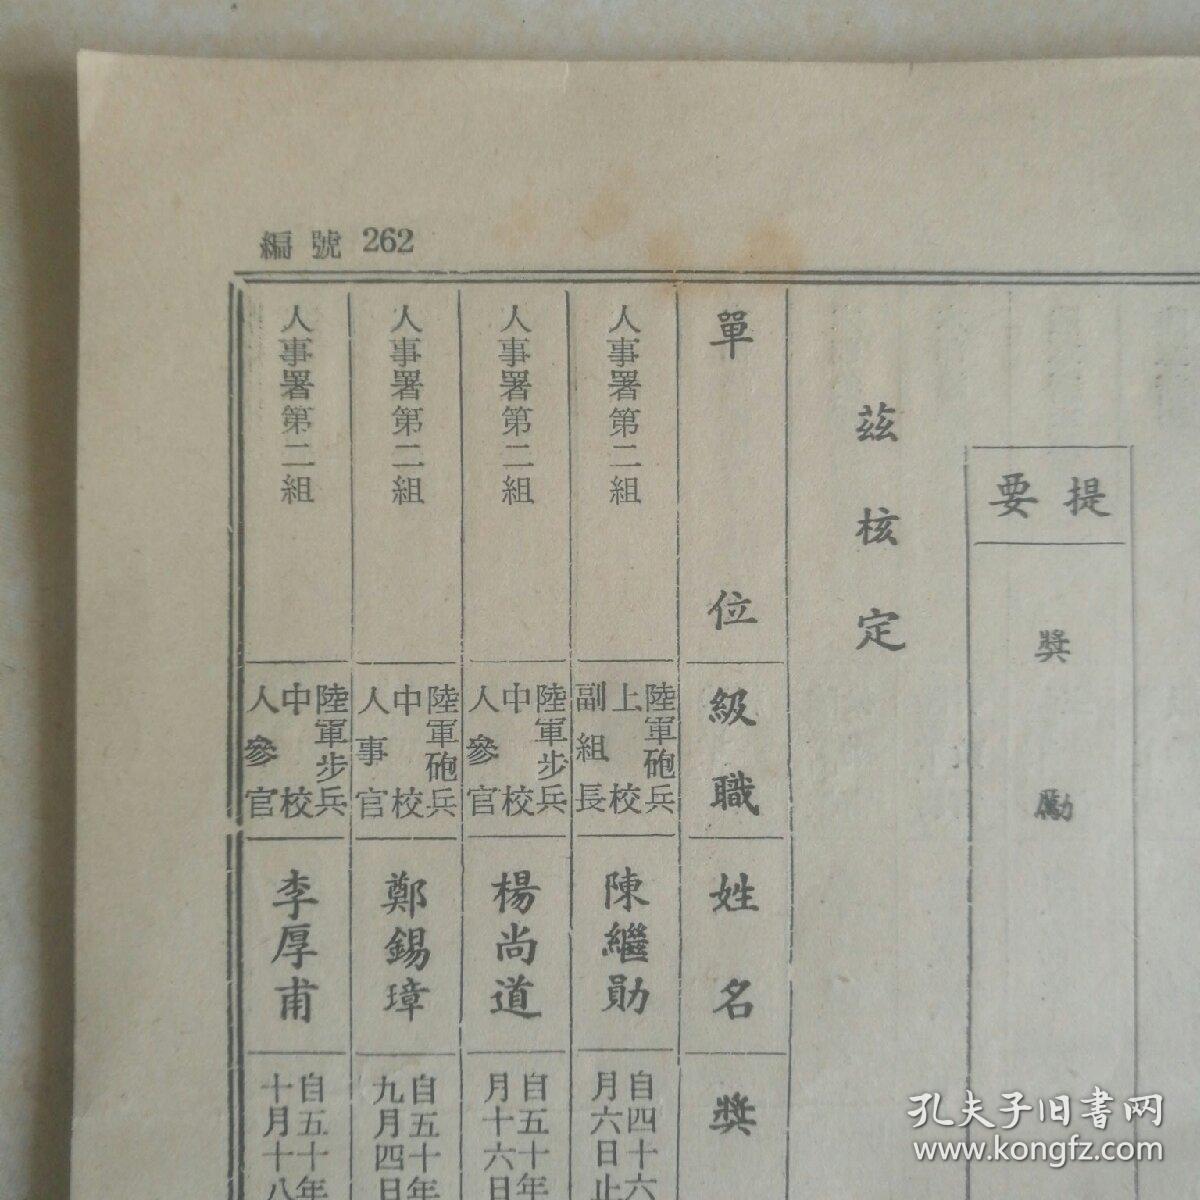 編號 262
提要
獎勵
茲核定
單位
級職
姓名
獎
人事署第二組
陸軍砲兵
上校
副組長
陳繼勛
自四十六
月六日止
人事署第二組
陸軍步兵
中校
人參官
楊尚道
自五十年
月十六日
人事署第二組
陸軍砲兵
中校
人事官
鄭錫璋
自五十年
九月四日
人事署第二組
陸軍步兵
中校
人參官
李厚甫
自五十年
十月十八
孔夫子旧书网
www.kongfz.com